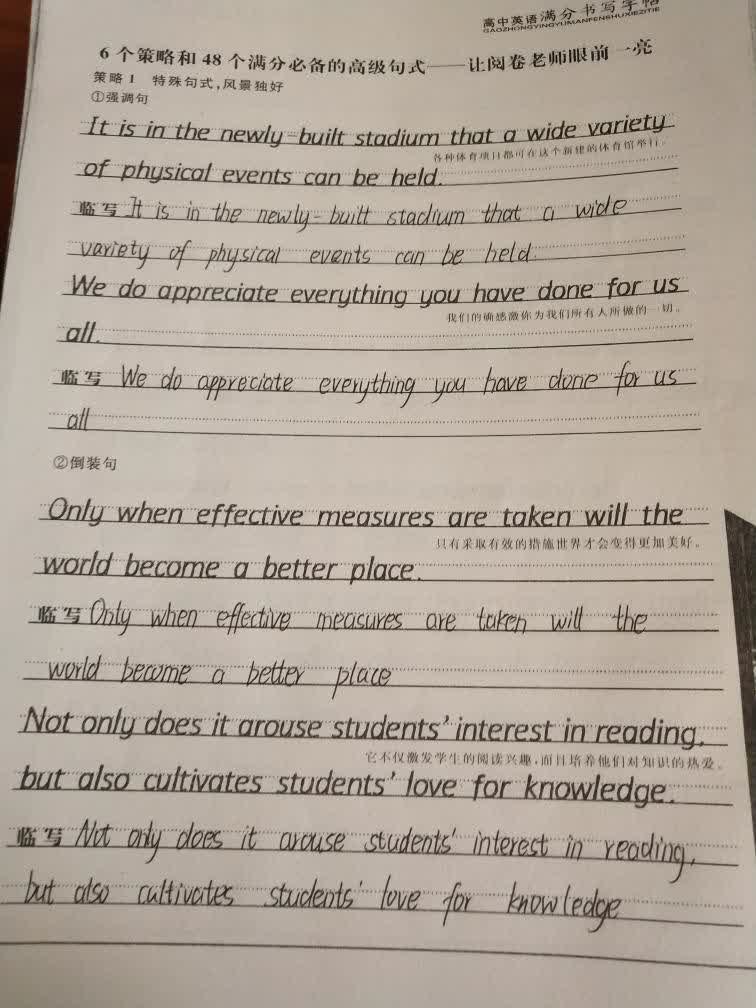 高中英语满分书写字帖
GAOZHONGYINGYUMANFENSHUXIEZITIE
6个策略和48个满分必备的高级句式——让阅卷老师眼前一亮
策略1 特殊句式,风景独好
①强调句
It is in the newly-built stadium that a wide variety
各种体育项目都可在这个新建的体育馆举行。
of physical events can be held.
临写 It is in the newly-built stadium that a wide
variety of physical events can be held.
We do appreciate everything you have done for us
我们的确感激你为我们所有人所做的一切。
all.
临写 We do appreciate everything you have done for us
all
②倒装句
Only when effective measures are taken will the
只有采取有效的措施世界才会变得更加美好。
world become a better place.
临写 Only when effective measures are taken will the
world become a better place
Not only does it arouse students' interest in reading,
它不仅激发学生的阅读兴趣,而且培养他们对知识的热爱。
but also cultivates students' love for knowledge.
临写 Not only does it arouse students' interest in reading,
but also cultivates students' love for knowledge